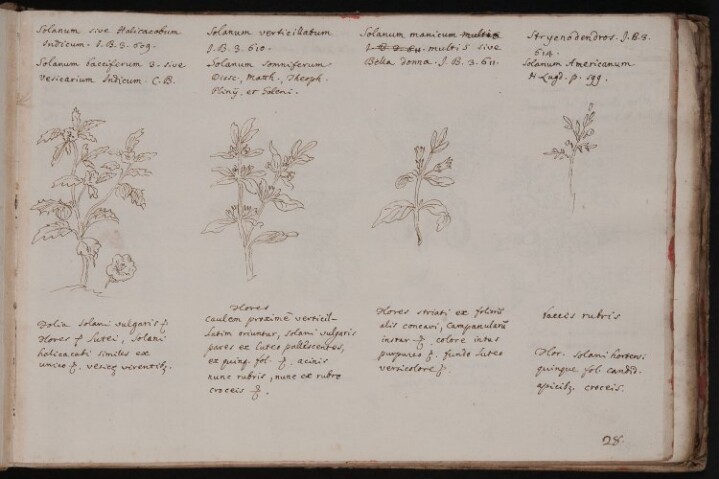 Solanum sive Halicacabum
Indicum. I.B.3.609.
Solanum bacciferum 3. sive
vesicarium Indicum. C.B.
Solanum verticillatum
I.B.3.610.
Solanum somniferum
Diosc. Matth. Theoph.
Plinij et Galeni.
Solanum manicum multis
multis sive
Bella donna. I.B.3.611.
Strycnodendros. I.B.3.
614.
Solanum Americanum
H Lugd. p. 599.
Folia solani vulgaris
Flores lutei, solani
halicacabi similes ex
unico
Flores
caulem proximè verticil-
latim oriuntur, solani vulgaris
pares ex luteo pallescentes,
ex quinq. fol. acinis
nunc rubris, nunc ex rubro
croceis
Flores striati ex foliorū
alis concavi, campanularū
instar colore intus
purpureo fundo luteo
versicolore
baccis rubris
Flor. solani hortens:
quinque fol. candid.
apicibq croceis.
28.